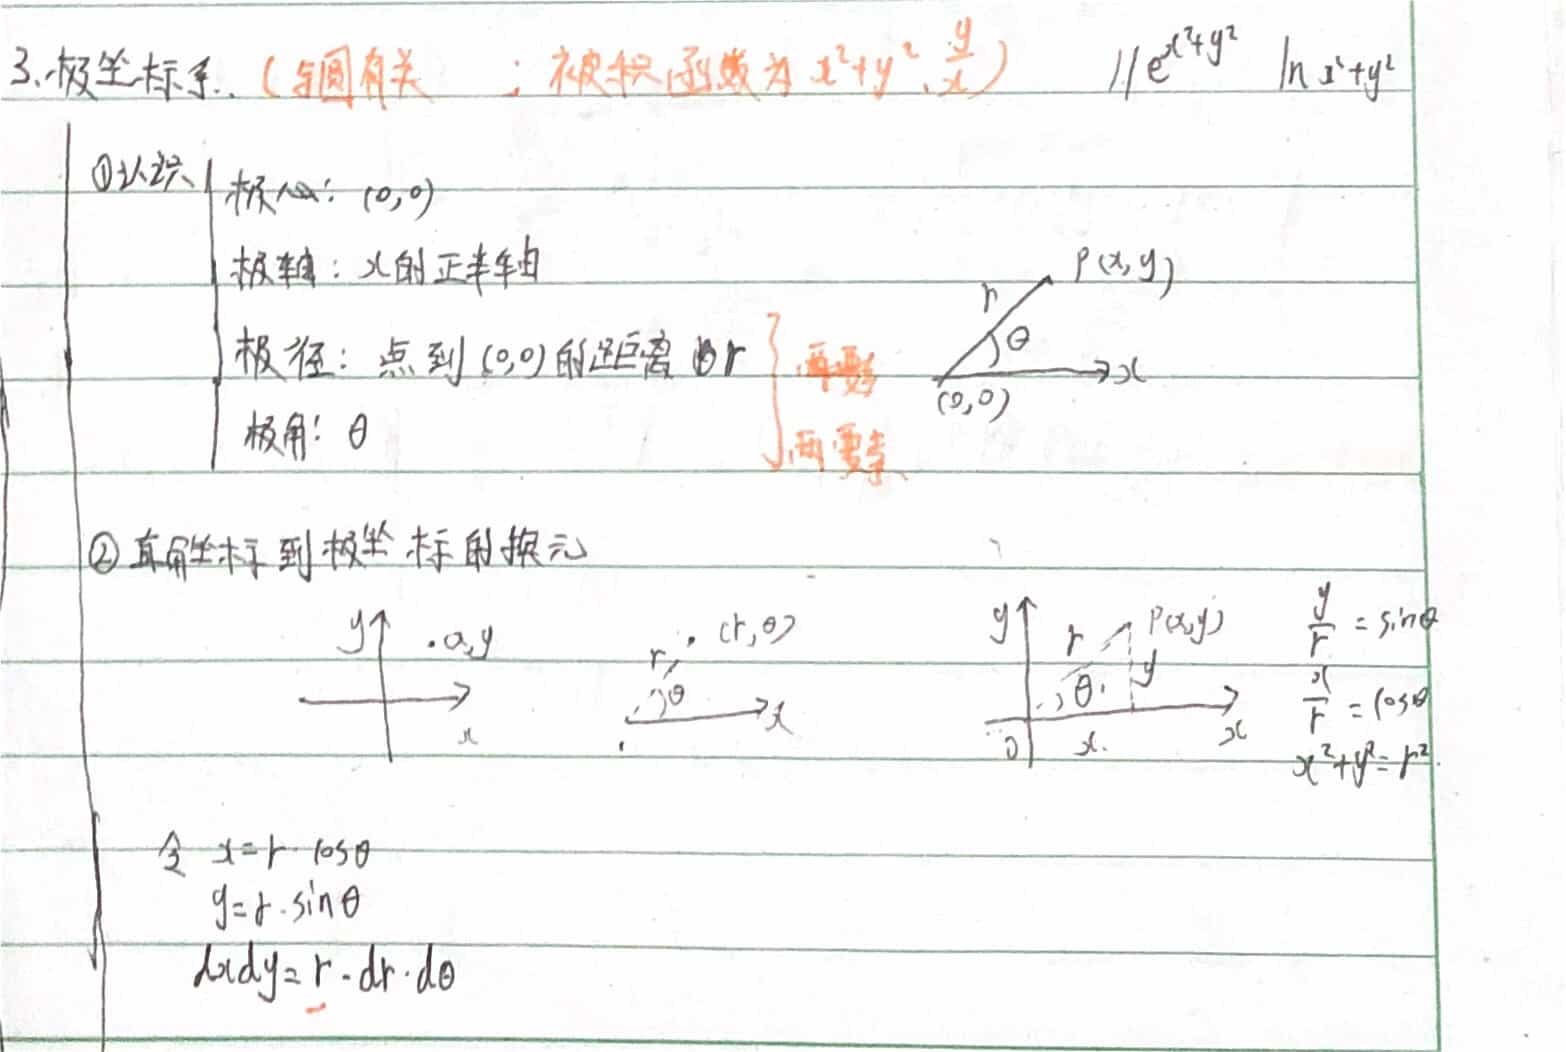 3.极坐标系.(与圆有关 ; 被积函数为x²+y²、y/x) // e^{x²+y²} ln x²+y²
①认识
极心: (0,0)
极轴: x的正半轴
极径: 点到(0,0)的距离 r
极角: θ
两要素
两要素
P(x,y)
r
θ
x
(0,0)
②直角坐标到极坐标的换元
y
x,y
x
(r,θ)
r
θ
x
y
r
P(x,y)
θ
y
0
x
x
y/r = sinθ
x/r = cosθ
x²+y²=r²
令 x=r·cosθ
y=r·sinθ
dxdy=r·dr·dθ